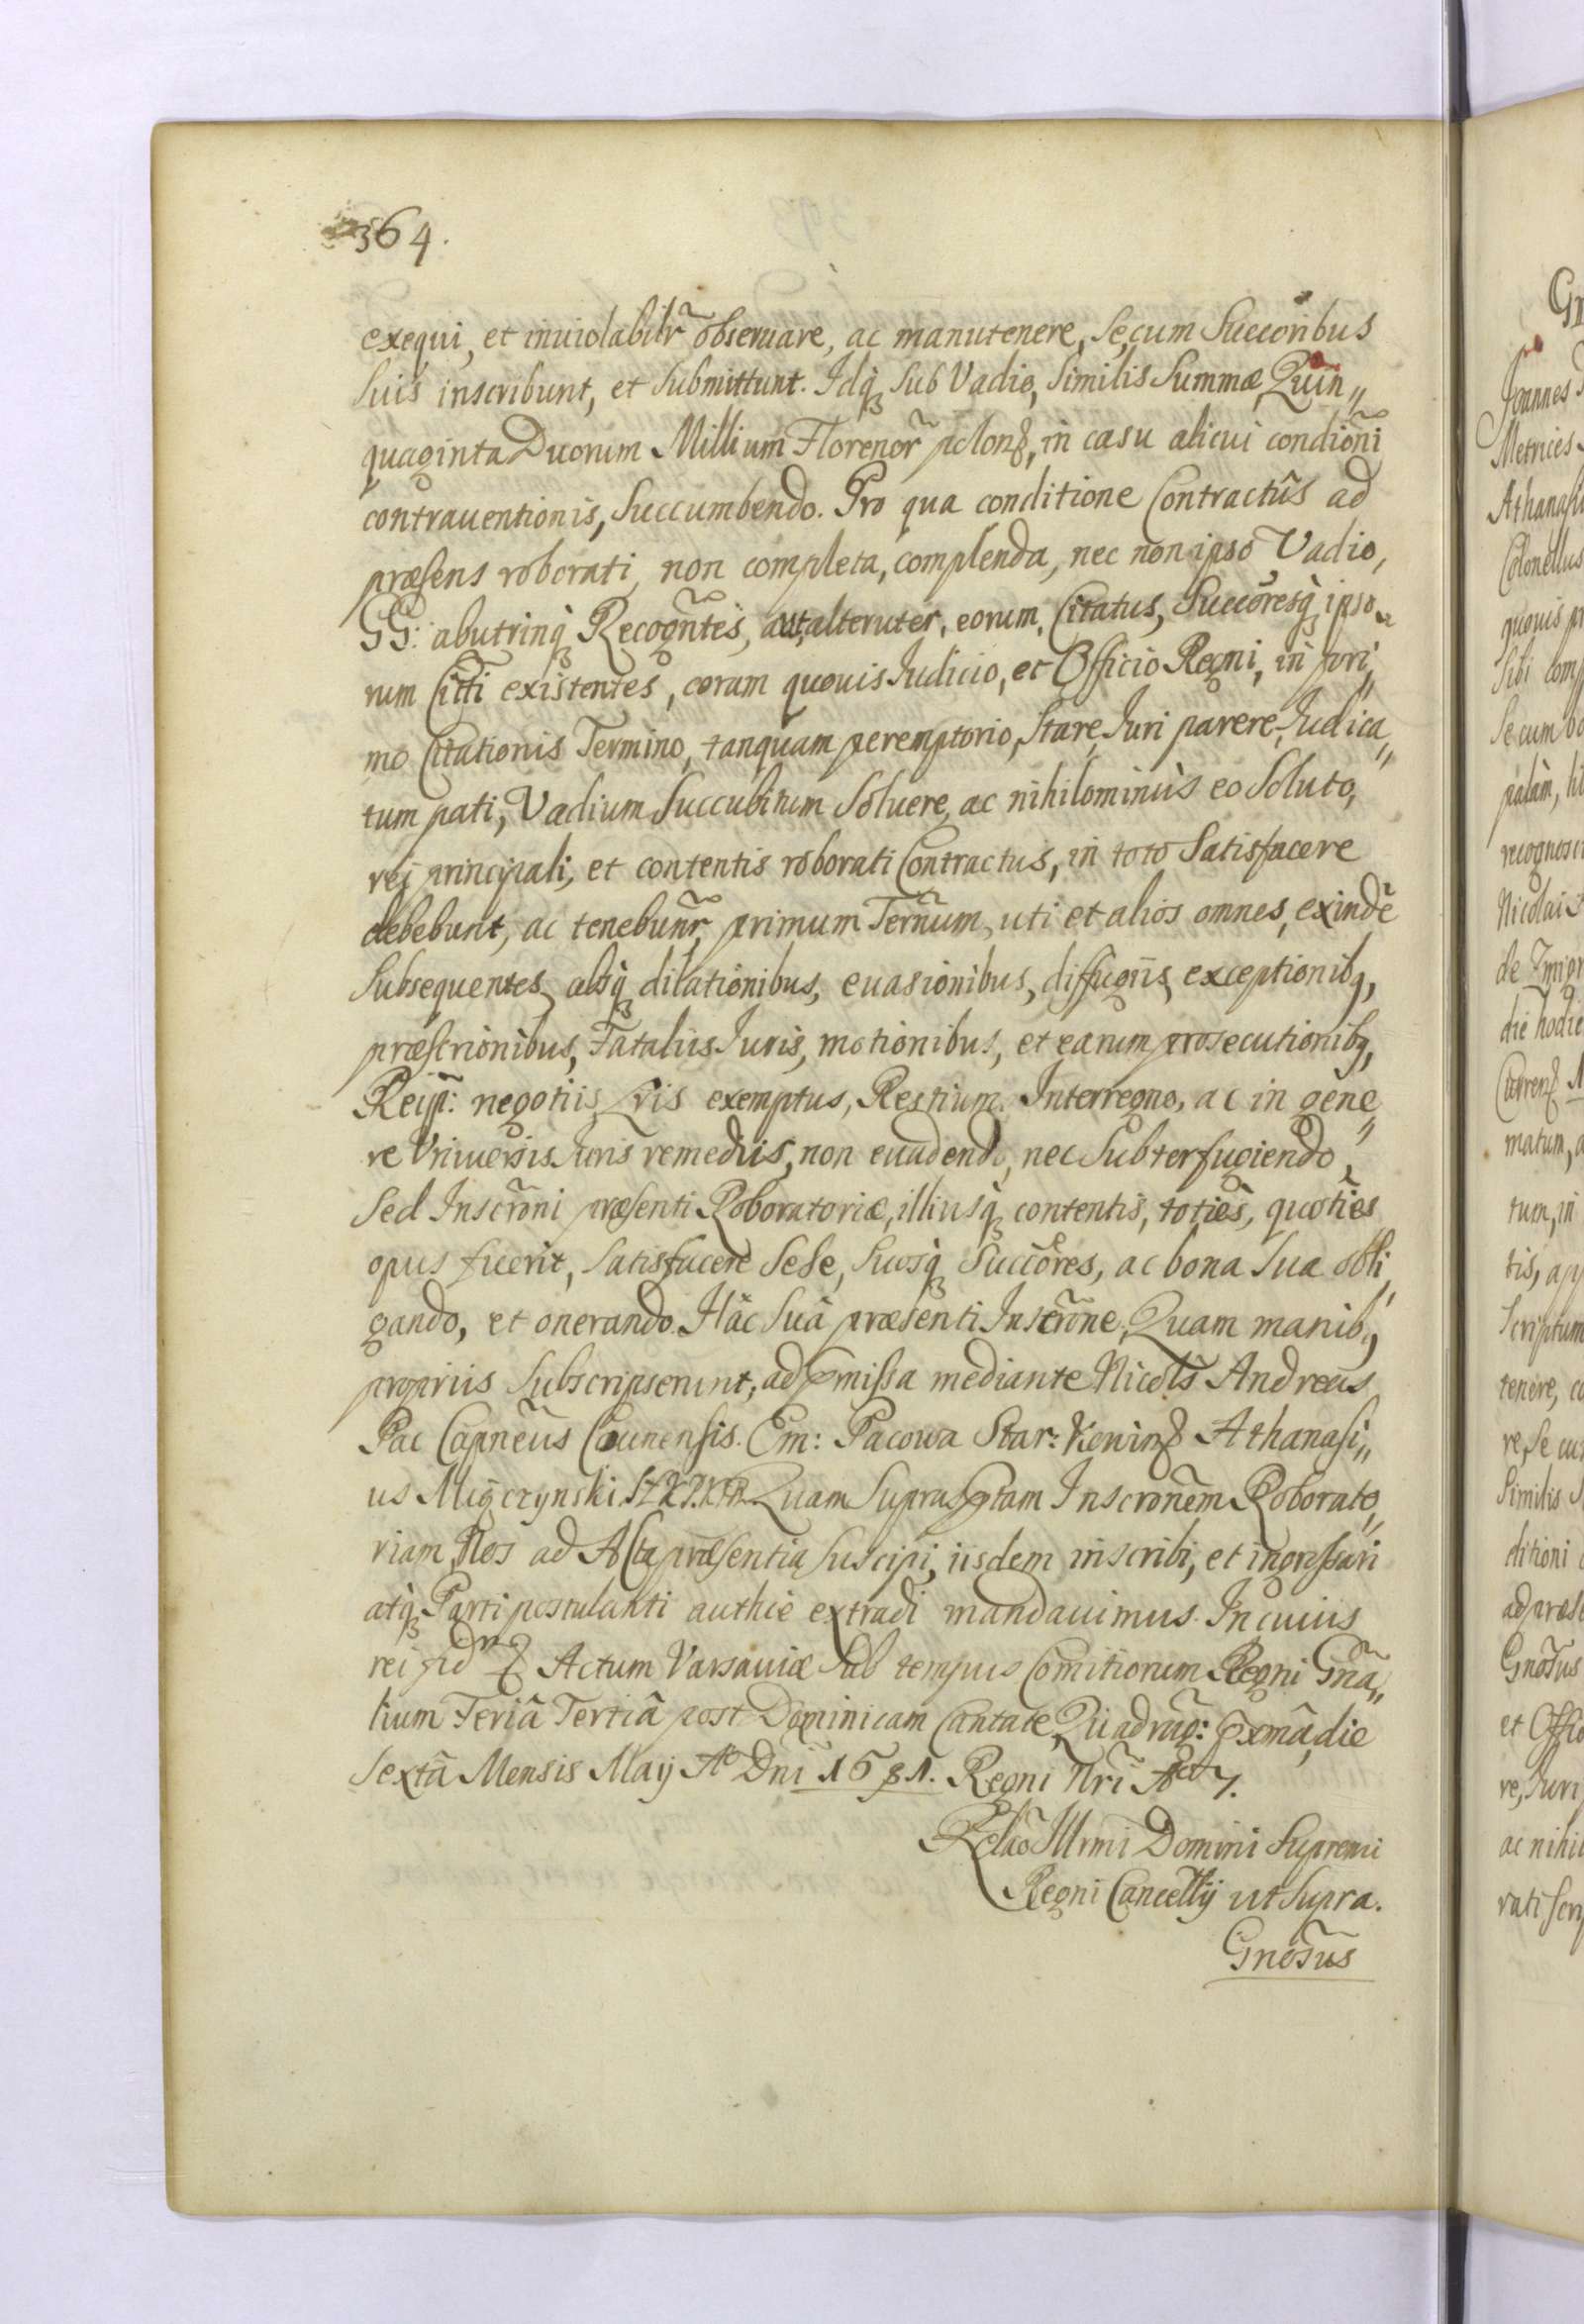 364.
exequi, et inuiolabilr̃ obseruare, ac manutenere, Secum Succõribus
Suis inscribunt, et Submittunt. Idq́ꝫ Sub Vadio, Similis Summæ Quin„
quaginta Duorum Millium Florenor̃ polonꝫ, in casu alicui condiõni
contrauentionis, Succumbendo. Pro qua conditione Contractûs ad
præsens roborati, non completa, complenda, nec non ipso Vadio,
GG: abutrinq́ꝫ Recogñtes, aut alteruter, eorum, Citatus, Succõresq́ꝫ ipso„
rum Citti existentes, coram quouis Iudicio, et Officio Regni, in pri„
mo Citationis Termino, tanquam peremptorio, Stare, Iuri parere, Iudica„
tum pati, Vadium Succubitum Soluere, ac nihilominùs eo Soluto,
rei principali, et contentis roborati Contractus, in toto Satisfacere
debebunt, ac tenebunr̃, primum Ternũm, uti et alios omnes, exindè
Subsequentes, absq́ꝫ dilationibus, euasionibus, diffugiis, exceptionibꝫ,
præscrionibus, Fataliis Iuris, motionibus, et earum prosecutionibꝫ,
Reip̃: negotiis, exemptus, Interregno, ac in gene„
re Vniuersis Iuris remediis, non euadendo, nec Subterfugiendo,
Sed Inscrõni præsenti Roboratoriæ, illiusq́ꝫ contentis, totiès, quotiès
opus fuerit, Satisfacere Sese, Suosq́ꝫ Succõres, ac bona Sua obli„
gando, et onerando. Hâc Suâ præsenti Inscrõne, Quam manibꝫ,
propriis Subscripserunt, ad pmissa mediante Nicols̃ Andreas
Pac Capnẽus Caunensis. Em: Pacowa Star: Kowinꝫ Athanasi„
us Miączynski Quam Suprascptam Inscronẽm Roborato„
riam Nos ad Acta præsentia Suscipi, iisdem inscribi, et ingrossari
atq́ꝫ Parti postulanti authẽ extradi mandauimus. In cuius
rei fidm̃ Actum Varsauiæ Sub tempus Comitiorum Regni Gña„
lium Feriâ Tertiâ post Dominicam Cantate, Quadrag: pxmâ, die
Sextâ Mensis Maÿ Ao Dñi 1681. Regni Nri Ao 7.
Relaõ Illrmi Domini Supremi
Regni Cancellÿ ut Supra.
Gnosũs